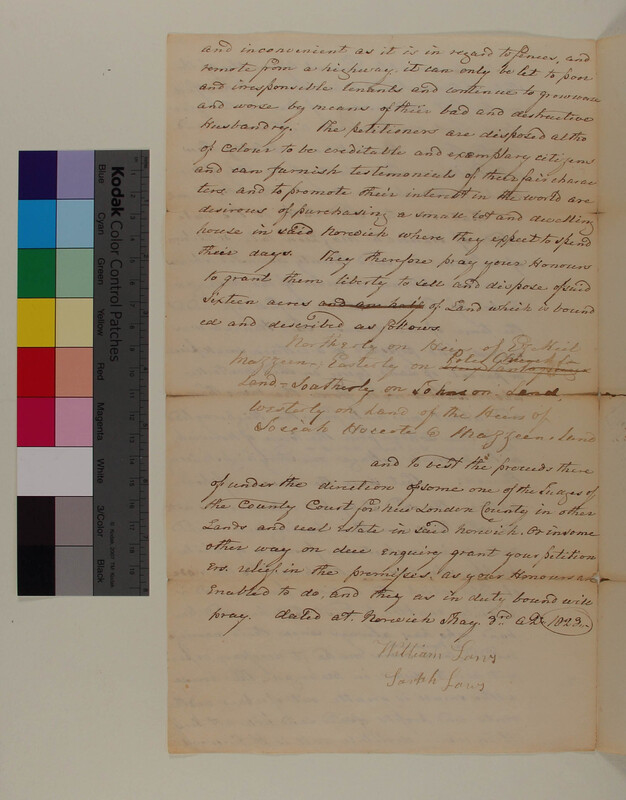 and inconvenient as it is in regard to fences, and
remote from a highway it can only be let to poor
and irresponsible tenants and continue to grow worse
and worse by means of their bad and destructive
husbandry. The petitioners are disposed altho
of Colour to be creditable and exemplary citizens
and can furnish testimonials of their fair charac
ters and to promote their interest in the world are
desirous of purchasing a small lot and dwelling
house in said Norwich where they expect to spend
their days. They therefore pray your Honours
to grant them liberty to sell and dispose of said
sixteen acres and an half of Land which is bound
ed and described as follows
Northerly on Heirs of
Mazzeen, Easterly on Peter
Land = Southerly on Johnson Land
Westerly on Land of the Heirs of
Josiah & Mazzeen land
and to vest the proceeds there
of under the direction of some one of the Judges of
the County Court for New London County in other
Lands and real estate in said Norwich. Or in some
other way on due enquiry grant your petition
ers. relief in the premises. as your Honours are
Enabled to do. and they as in duty bound will
pray. dated at. Norwich May. 3rd AD. 1823.
William Laws
Sarah Laws
Kodak Color Control Patches
Blue
Cyan
Green
Yellow
Red
Magenta
White
3/Color
Black
© Kodak, 2007 TM: Kodak